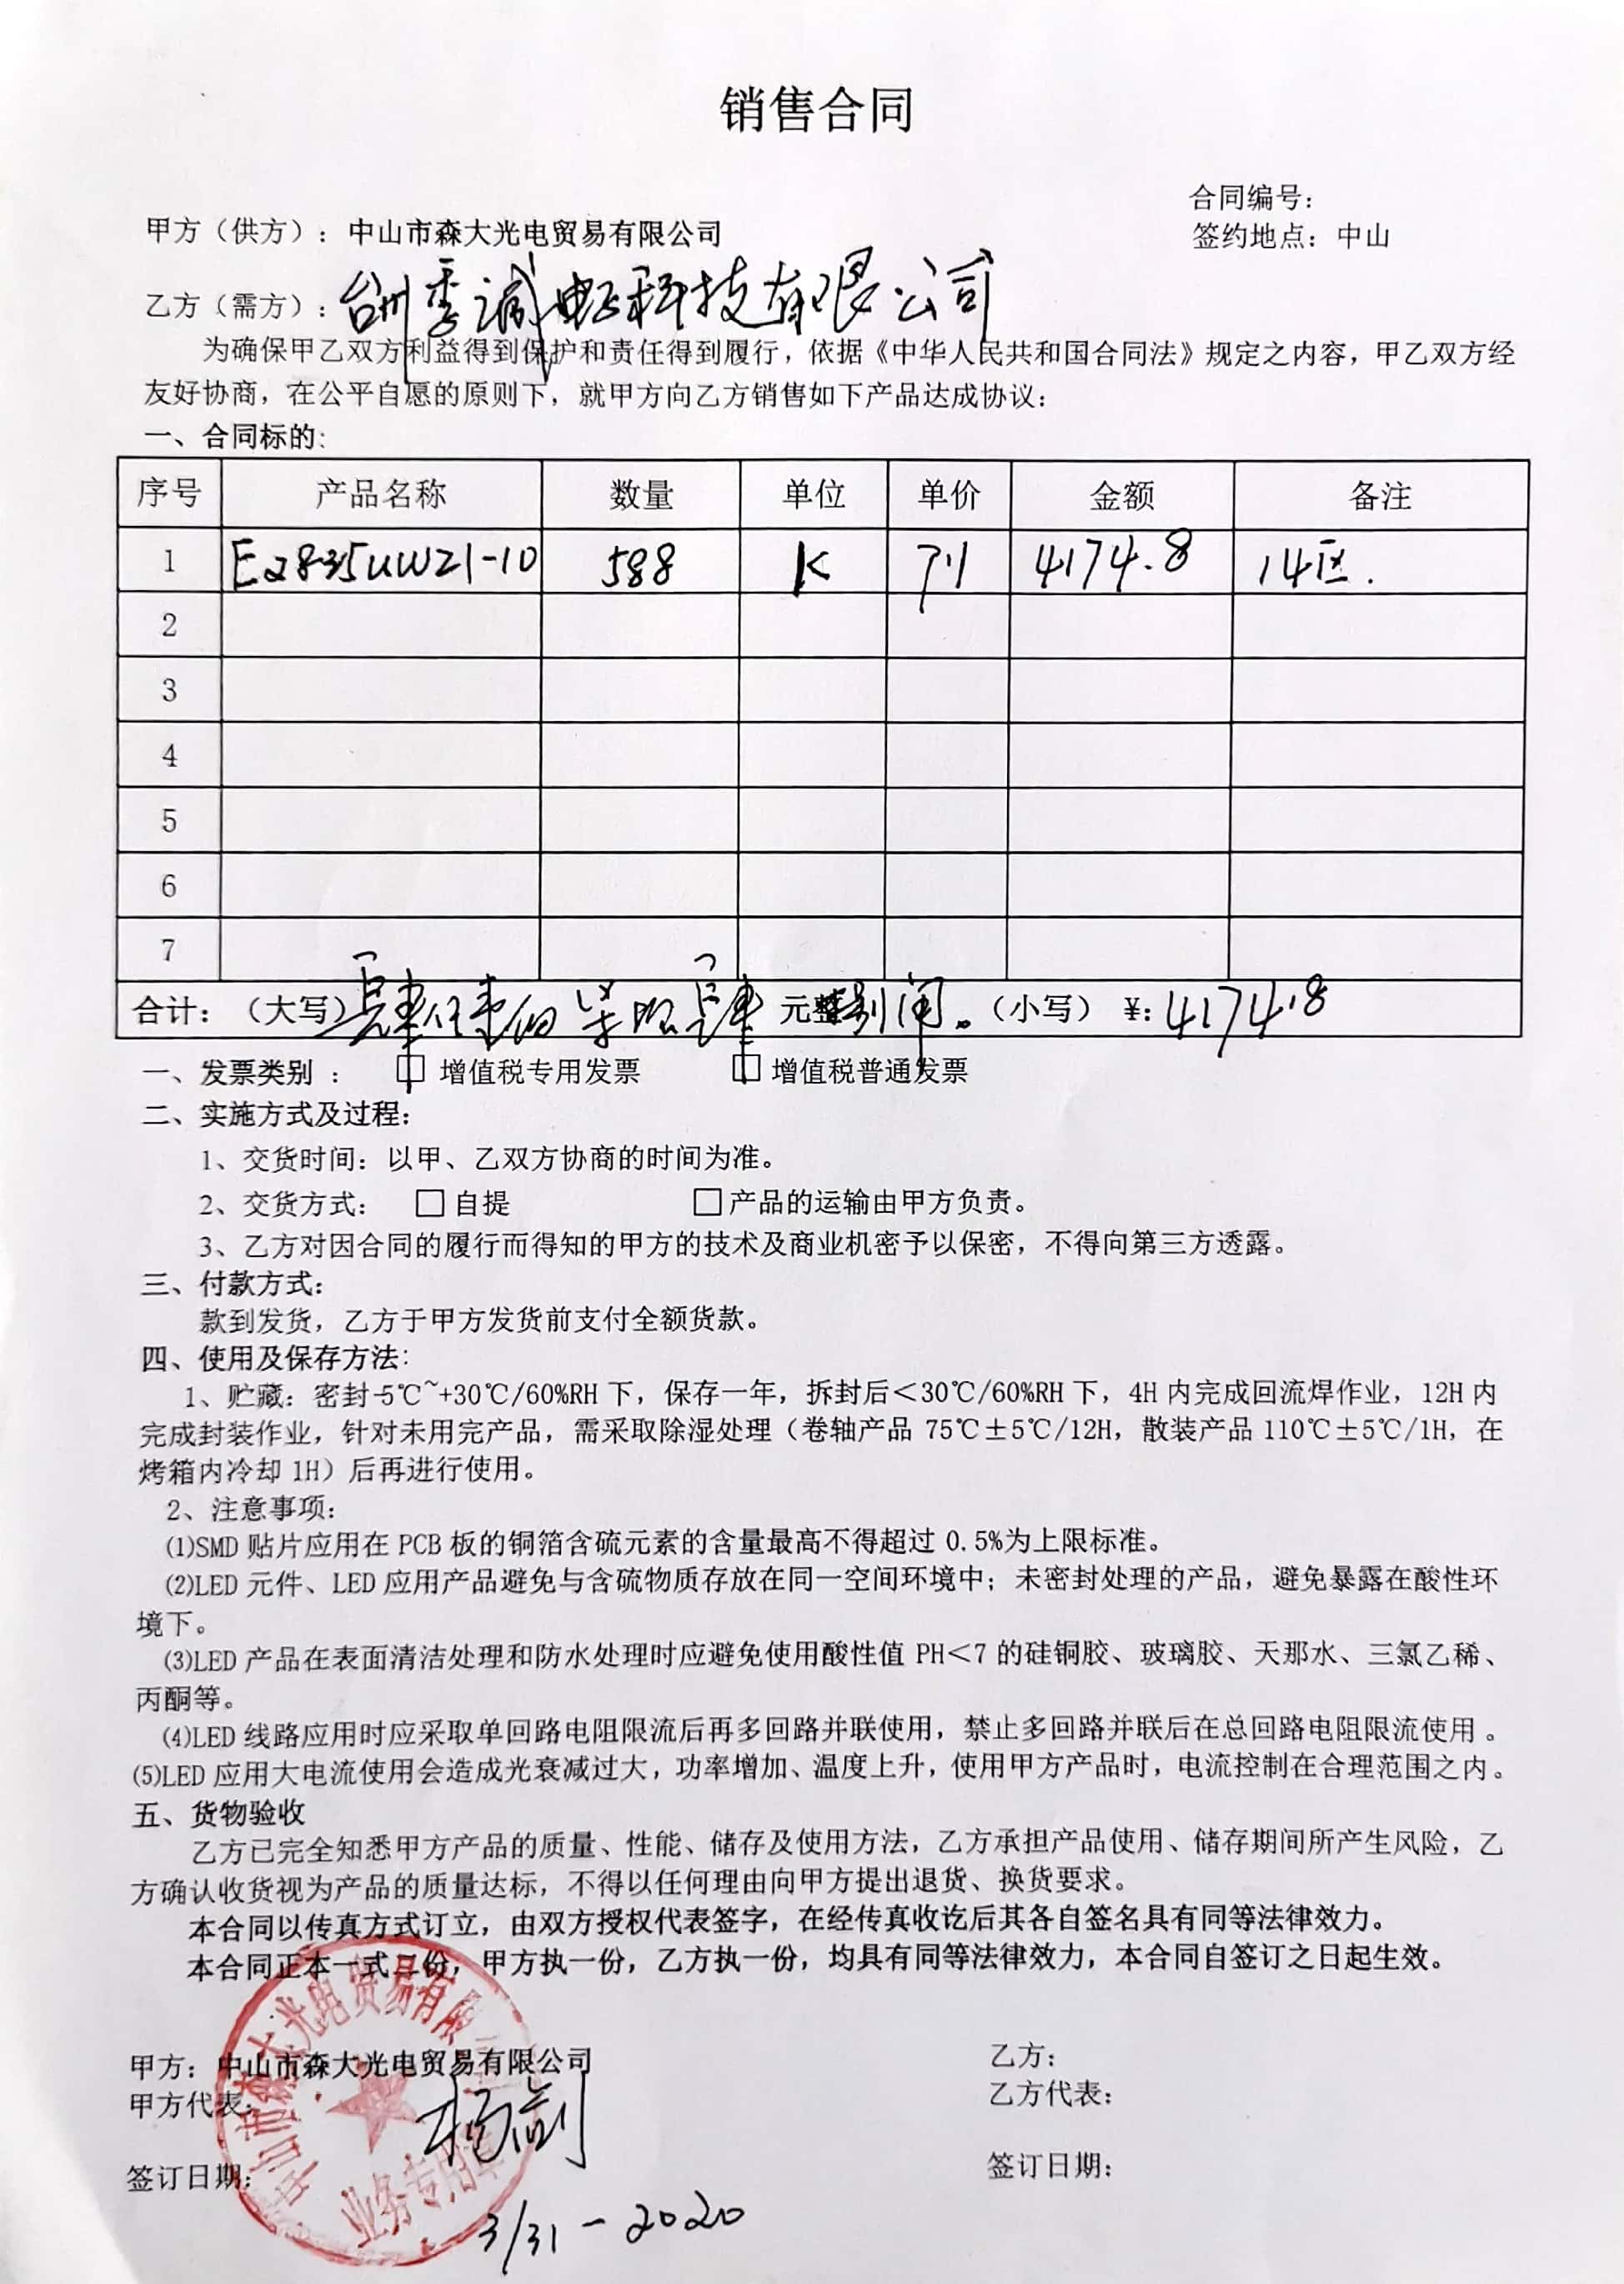 销售合同
合同编号：
甲方（供方）：中山市森大光电贸易有限公司
签约地点：中山
乙方（需方）：台州季诚电子科技有限公司
为确保甲乙双方利益得到保护和责任得到履行，依据《中华人民共和国合同法》规定之内容，甲乙双方经
友好协商，在公平自愿的原则下，就甲方向乙方销售如下产品达成协议：
一、合同标的：
序号 产品名称 数量 单位 单价 金额 备注
1 E2835UW21-10 588 K 7.1 4174.8 14区.
2
3
4
5
6
7
合计：（大写）肆仟壹佰柒拾肆元捌角。（小写）￥：4174.8
一、发票类别 ： □ 增值税专用发票 □ 增值税普通发票
二、实施方式及过程：
1、交货时间：以甲、乙双方协商的时间为准。
2、交货方式： □ 自提 □产品的运输由甲方负责。
3、乙方对因合同的履行而得知的甲方的技术及商业机密予以保密，不得向第三方透露。
三、付款方式：
款到发货，乙方于甲方发货前支付全额货款。
四、使用及保存方法：
1、贮藏：密封-5℃~+30℃/60%RH 下，保存一年，拆封后＜30℃/60%RH 下，4H 内完成回流焊作业，12H 内
完成封装作业，针对未用完产品，需采取除湿处理（卷轴产品 75℃±5℃/12H，散装产品 110℃±5℃/1H，在
烤箱内冷却 1H）后再进行使用。
2、注意事项：
(1)SMD 贴片应用在 PCB 板的铜箔含硫元素的含量最高不得超过 0.5%为上限标准。
(2)LED 元件、LED 应用产品避免与含硫物质存放在同一空间环境中；未密封处理的产品，避免暴露在酸性环
境下。
(3)LED 产品在表面清洁处理和防水处理时应避免使用酸性值 PH＜7 的硅铜胶、玻璃胶、天那水、三氯乙稀、
丙酮等。
(4)LED 线路应用时应采取单回路电阻限流后再多回路并联使用，禁止多回路并联后在总回路电阻限流使用 。
(5)LED 应用大电流使用会造成光衰减过大，功率增加、温度上升，使用甲方产品时，电流控制在合理范围之内。
五、货物验收
乙方已完全知悉甲方产品的质量、性能、储存及使用方法，乙方承担产品使用、储存期间所产生风险，乙
方确认收货视为产品的质量达标，不得以任何理由向甲方提出退货、换货要求。
本合同以传真方式订立，由双方授权代表签字，在经传真收讫后其各自签名具有同等法律效力。
本合同正本一式二份，甲方执一份，乙方执一份，均具有同等法律效力，本合同自签订之日起生效。
甲方：中山市森大光电贸易有限公司
乙方：
甲方代表：杨剑
乙方代表：
签订日期：
签订日期：
3/31-2020
中山市森大光电贸易有限公司
业务专用章